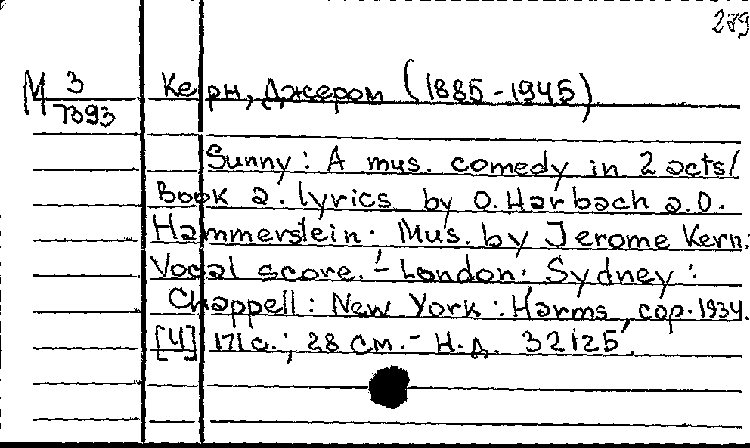 279
М 3
7393
Керн, Джером (1885-1945)
Sunny: A mus. comedy in 2 acts/
Book a. lyrics by O. Harbach a. O.
Hammerstein. Mus. by Jerome Kern:
Vocal score. - London: Sydney:
Chappell: New York: Harms, cop. 1934.
[4] 171 с.; 28 см. - Н.д. 32125.